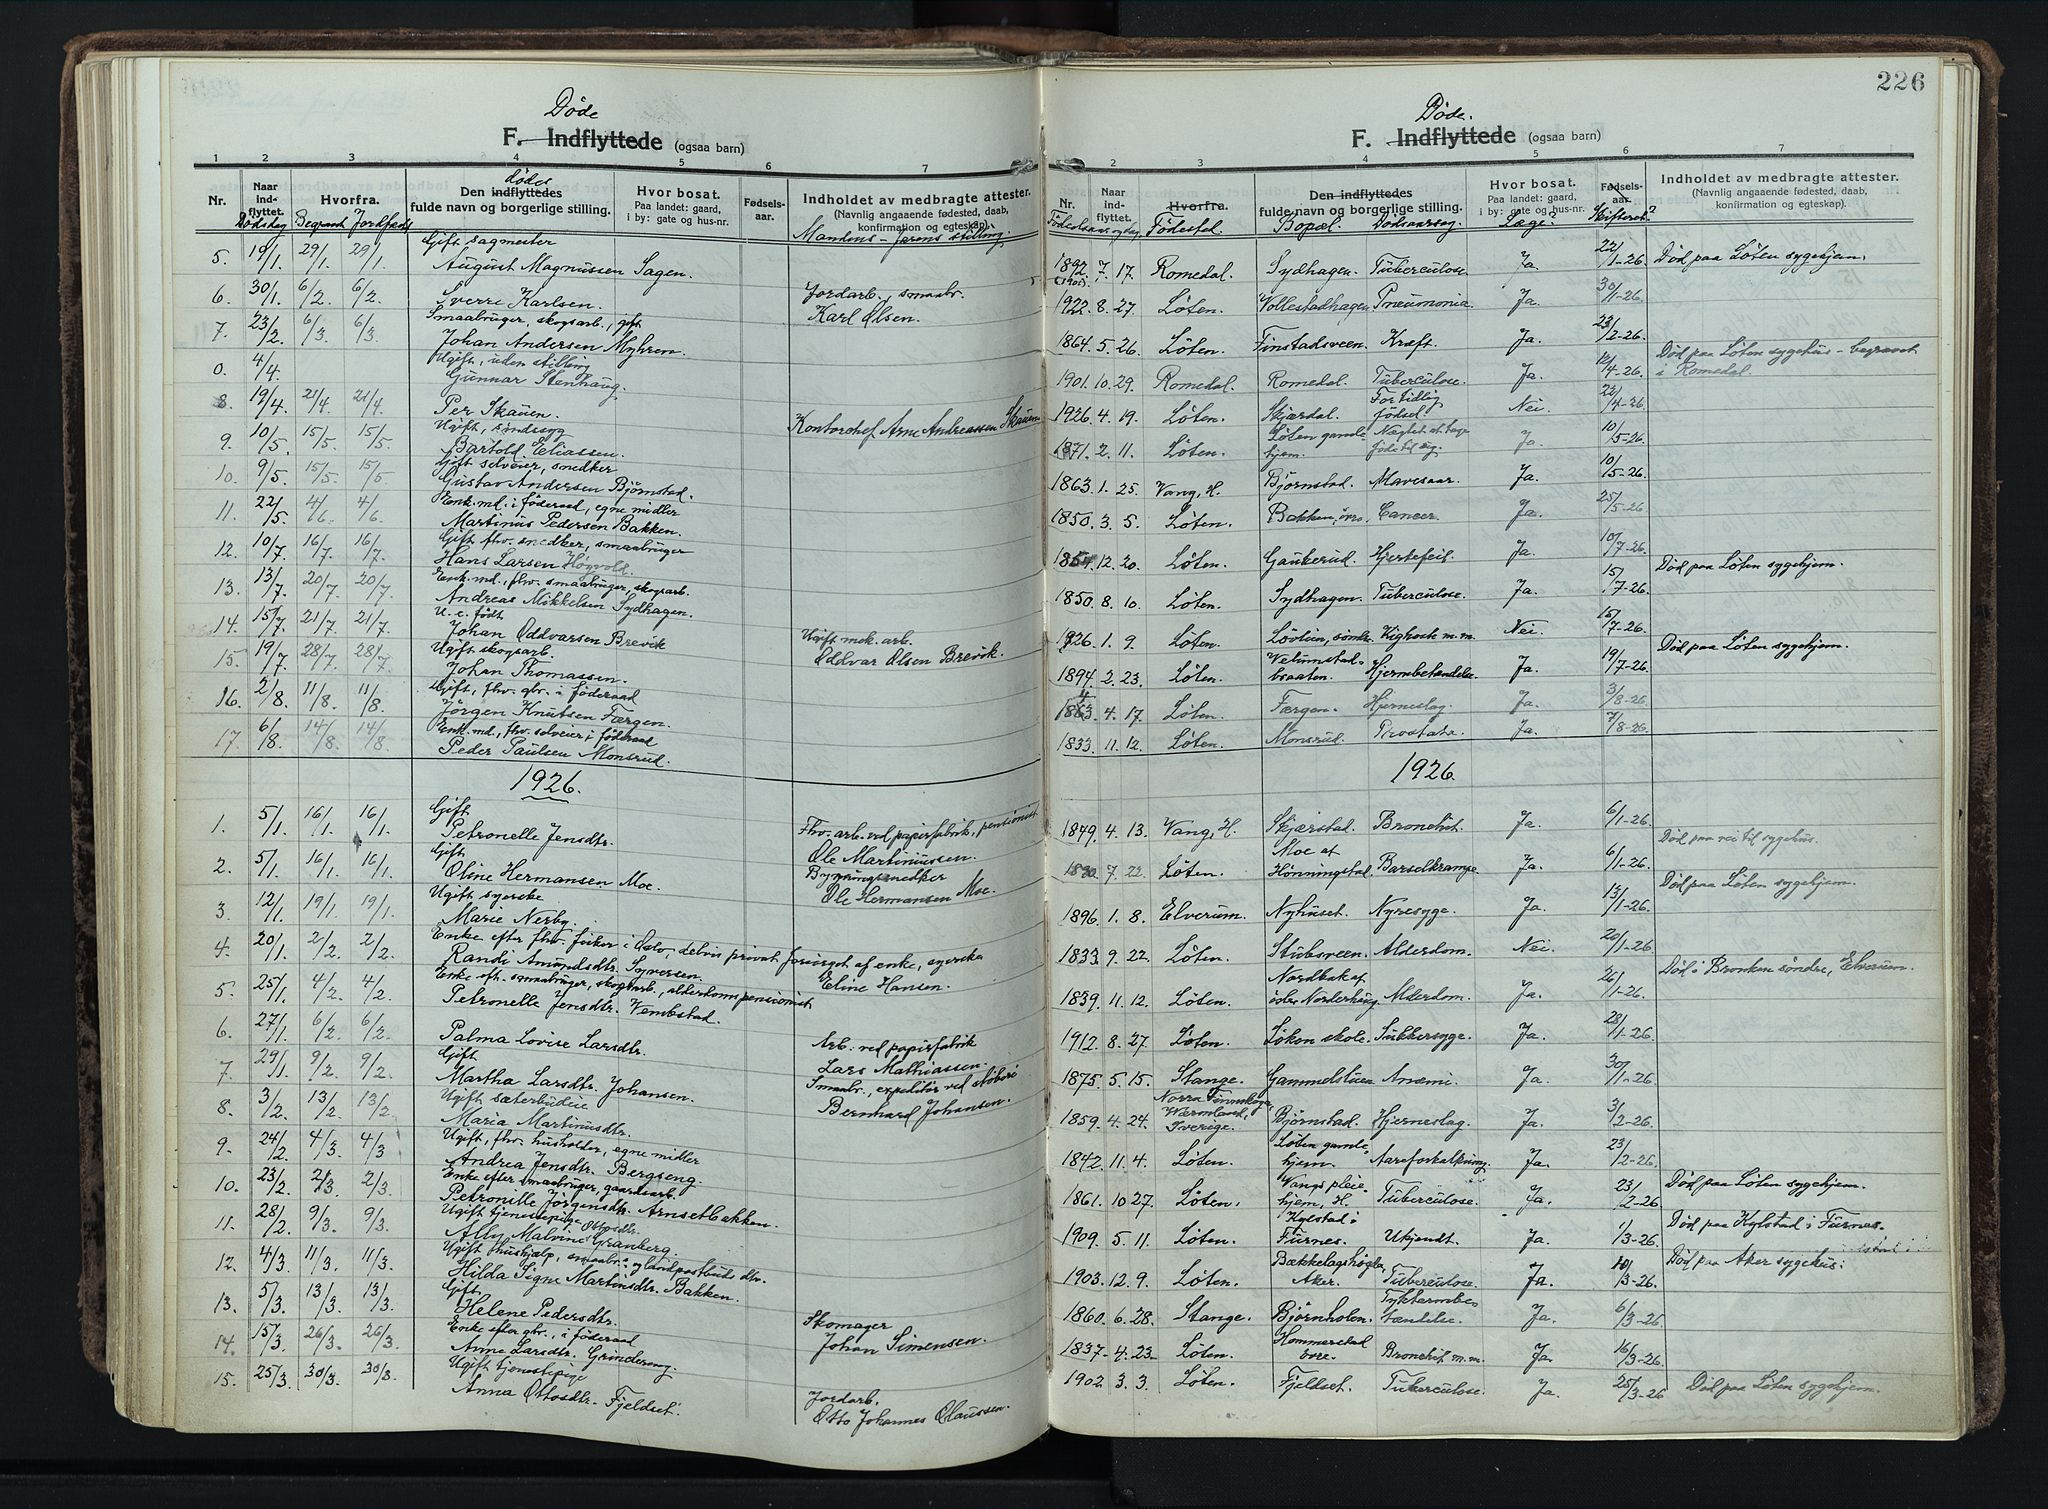 226
Døde
F. Indflyttede (ogsaa barn)
1 2 3 4 5 6 7
Nr.
Naar indflyttet.
Dødsdag
Hvorfra.
Begravet Jordfæst
dødes
Den indflyttedes fulde navn og borgerlige stilling.
Hvor bosat.
Paa landet: gaard, i by: gate og hus-nr.
Fødselsaar.
Indholdet av medbragte attester.
(Navnlig angaaende fødested, daab, konfirmation og egteskap).
Mandens - farens stilling.
5. 19/1 29/1. 29/1. Gift sagmester
August Magnussen Sagen.
6. 30/1. 6/2. 6/2. Sverre Karlsen. Jordarb., smaabr.
Karl Olsen.
7. 23/2. 6/3. 6/3. Smaabruger, skogsarb., gift
Johan Andersen Myhren.
0. 4/4. Ugift, uden stilling
Gunnar Stenhaug.
8. 19/4. 21/4. 21/4. Per Skauen. Kontorchef Arne Andreassen Skauen
9. 10/5. 15/5. 15/5. Ugift, sindssyg
Bartold Eliassen.
10. 9/5. 15/5. 15/5. Gift selveier, snedker
Gustav Andersen Bjørnstad.
11. 22/5. 4/6. 4/6. Enk.md. i føderaad, egne midler
Martinus Pedersen Bakken.
12. 10/7. 16/7. 16/7. Gift fhv. snedker, smaabruger
Hans Larsen Høgvold.
13. 13/7. 20/7. 20/7. Enk.md., fhv. smaabruger, skogsarb.
Andreas Mikkelsen Sydhagen.
14. 15/7. 21/7. 21/7. U. e. født
Johan Oddvarsen Brevik Ugift mek. arb.
Oddvar Olsen Brevik.
15. 19/7. 28/7. 28/7. Ugift skogsarb.
Johan Thomassen.
16. 2/8. 11/8. 11/8. Gift, fhv. gbr. i føderaad
Jørgen Knutsen Færgen.
17. 6/8. 14/8. 14/8. Enk.md, fhv. selveier i føderaad
Peder Paulsen Monsrud.
1926.
1. 5/1. 16/1. 16/1. Gift
Petronelle Jensdtr. Fhv. arb. ved papirfabrik, pensionist
Ole Martiniussen.
2. 5/1. 16/1. 16/1. Gift
Oline Hermansen Moe. Bygningssnedker
Ole Hermansen Moe.
3. 12/1. 19/1. 19/1. Ugift syerske
Marie Nerby.
4. 20/1. 2/2. 2/2. Enke efter fhv. fisker i Oslo, delvis privat forsørget af enke, syerske
Randi Amundsdtr. Syversen. Eline Hansen.
5. 25/1. 4/2. 4/2. Enke eft. smaabruger, skogsarb, alderdomspensionist
Petronelle Jensdtr. Vembstad.
6. 27/1. 6/2. 6/2. Palma Lovise Larsdtr. Arb. ved papirfabrik
Lars Mathiassen.
7. 29/1. 9/2. 9/2. Gift
Martha Larsdtr. Johansen. Smaabr., expeditør ved støberi
Bernhard Johansen.
8. 3/2. 13/2. 13/2. Ugift sæterbudeie
Maria Martinusdtr.
9. 24/2. 4/3. 4/3 Ugift, fhv. husholder, egne midler
Andrea Jensdtr. Bergseng.
10. 23/2. 2/3. 2/3. Enke efter smaabruger, gaardsarb.
Petronille Jørgensdtr. Arnsetbakken.
11. 28/2 9/3. 9/3. Ugift tjenestepige
Ally Malvine Ottosdtr. Granberg.
12. 4/3. 11/3. 11/3. Ugift hushjælp, smaabr.- og landpostbuds dtr.
Hilda Signe Martinsdtr. Bakken.
13. 5/3. 13/3. 13/3. Gift
Helene Pedersdtr. Skomager
Johan Simensen.
14. 15/3. 26/3. 26/3. Enke efter gbr., i føderaad
Anne Larsdtr. Grindereng.
15. 25/3. 30/3. 30/3. Ugift tjenestepige
Anna Ottosdtr. Fjeldset. Jordarb.
Otto Johannes Olaussen.
Døde.
F. Indflyttede (ogsaa barn)
2 3 4 5 6 7
Nr.
Naar indflyttet.
Fødselsaar og dag
Hvorfra.
Fødested.
Den indflyttedes fulde navn og borgerlige stilling.
Bopæl. Dødsaarsag.
Hvor bosat.
Paa landet: gaard, i by: gate og hus-nr.
Læge?
Fødselsaar.
Skifteret?
Indholdet av medbragte attester.
(Navnlig angaaende fødested, daab, konfirmation og egteskap).
1892. 7. 17. Romedal. Sydhagen. Tuberculose. Ja. 22/1-26. Død paa Løten sygehjem.
1922. 8. 27. Løten. Vollestadhagen. Pneumonia. Ja. 30/1-26.
1864. 5. 26. Løten. Finstadsveen. Kræft. Ja. 23/2-26.
1901. 10. 29. Romedal. Romedal. Tuberculose. Ja. 12/4-26. Død paa Løten sygehus - begravet i Romedal.
1926. 4. 19. Løten. Skjærdal. Fortidlig fødsel. Nei. 22/4-26.
1871. 2. 11. Løten. Løten gamlehjem. Nægtet at tage føde til sig. Ja. 10/5-26.
1863. 1. 25. Vang, H. Bjørnstad. Mavesaar. Ja. 10/5-26.
1850. 3. 5. Løten. Bakken, øvre. Cancer. Ja. 25/5-26.
1854. 12. 20. Løten. Gaukerud. Hjertefeil. Ja. 10/7-26. Død paa Løten sygehjem.
1850. 8. 10. Løten. Sydhagen. Tuberculose. Ja. 15/7-26.
1926. 1. 9. Løten. Løvlien, søndre. Kighoste m.m. Nei. 15/7-26. Død paa Løten sygehjem.
1894. 2. 23. Løten. Velumstadbraaten. Hjernebetændelse. Ja. 19/7-26.
1863. 4. 17. Løten. Færgen. Hjerneslag. Ja. 3/8-26.
1833. 11. 12. Løten. Monsrud. Prostata. Ja. 7/8-26.
1926.
1849. 4. 13. Vang, H. Skjærstad. Bronchit. Ja. 6/1-26.
1890. 7. 22. Løten. Moe af Hønningstad. Barselkrampe. Ja. 6/1-26. Død paa vei til sygehus.
1896. 1. 8. Elverum. Nyhuset. Nyresyge. Ja. 13/1-26. Død paa Løten sygehjem.
1833. 9. 22. Løten. Stubsveen. Alderdom. Nei. 20/1-26.
1839. 11. 12. Løten. Nordbak af østre Norderhaug. Alderdom. Ja. 26/1-26. Død i Bronken søndre, Elverum.
1912. 8. 27. Løten. Løken skole. Sukkersyge. Ja. 28/1-26.
1875. 5. 15. Stange. Gammelstuen. Anæmi. Ja. 30/1-26.
1859. 4. 24. Norra Finnskoga, Wärmland, Sverige. Bjørnstad. Hjerneslag. Ja. 3/2-26.
1842. 11. 4. Løten. Løten gamlehjem. Aareforkalkning. Ja. 23/2-26.
1861. 10. 27. Løten. Vangs pleiehjem, H. Tuberculose. Ja. 23/2-26. Død paa Løten sygehjem.
1909. 5. 11. Løten. Kylstad i Furnes. Ukjendt. Ja. 1/3-26. Død paa Kylstad i Furnes.
1903. 12. 9. Løten. Bækkelagshøgda, Aker. Tuberculose. Ja. 10/3-26. Død paa Aker sygehus.
1860. 6. 28. Stange. Bjørnholen. Tyktarmbetændelse. Ja. 6/3-26.
1837. 4. 23. Løten. Hommerstad øvre. Bronchit m.m. Ja. 16/3-26.
1902. 3. 3. Løten. Fjeldset. Tuberculose. Ja. 25/3-26. Død paa Løten sygehjem.